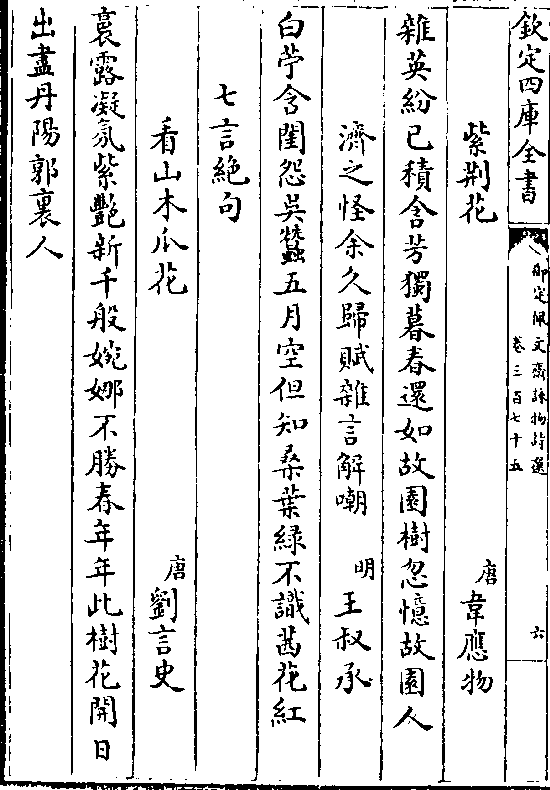 欽定四庫全書
御定佩文齋詠物詩選
卷三百七十五
六
紫荆花 唐 韋應物
雜英紛已積含芳獨暮春還如故園樹忽憶故園人
濟之怪余久歸賦雜言解嘲 明 王叔承
白苧含閨怨吳蠶五月空但知桑葉緑不識茜花紅
七言絶句
看山木瓜花 唐 劉言史
裛露凝氛紫艷新千般婉娜不勝春年年此樹花開日
出盡丹陽郭裏人